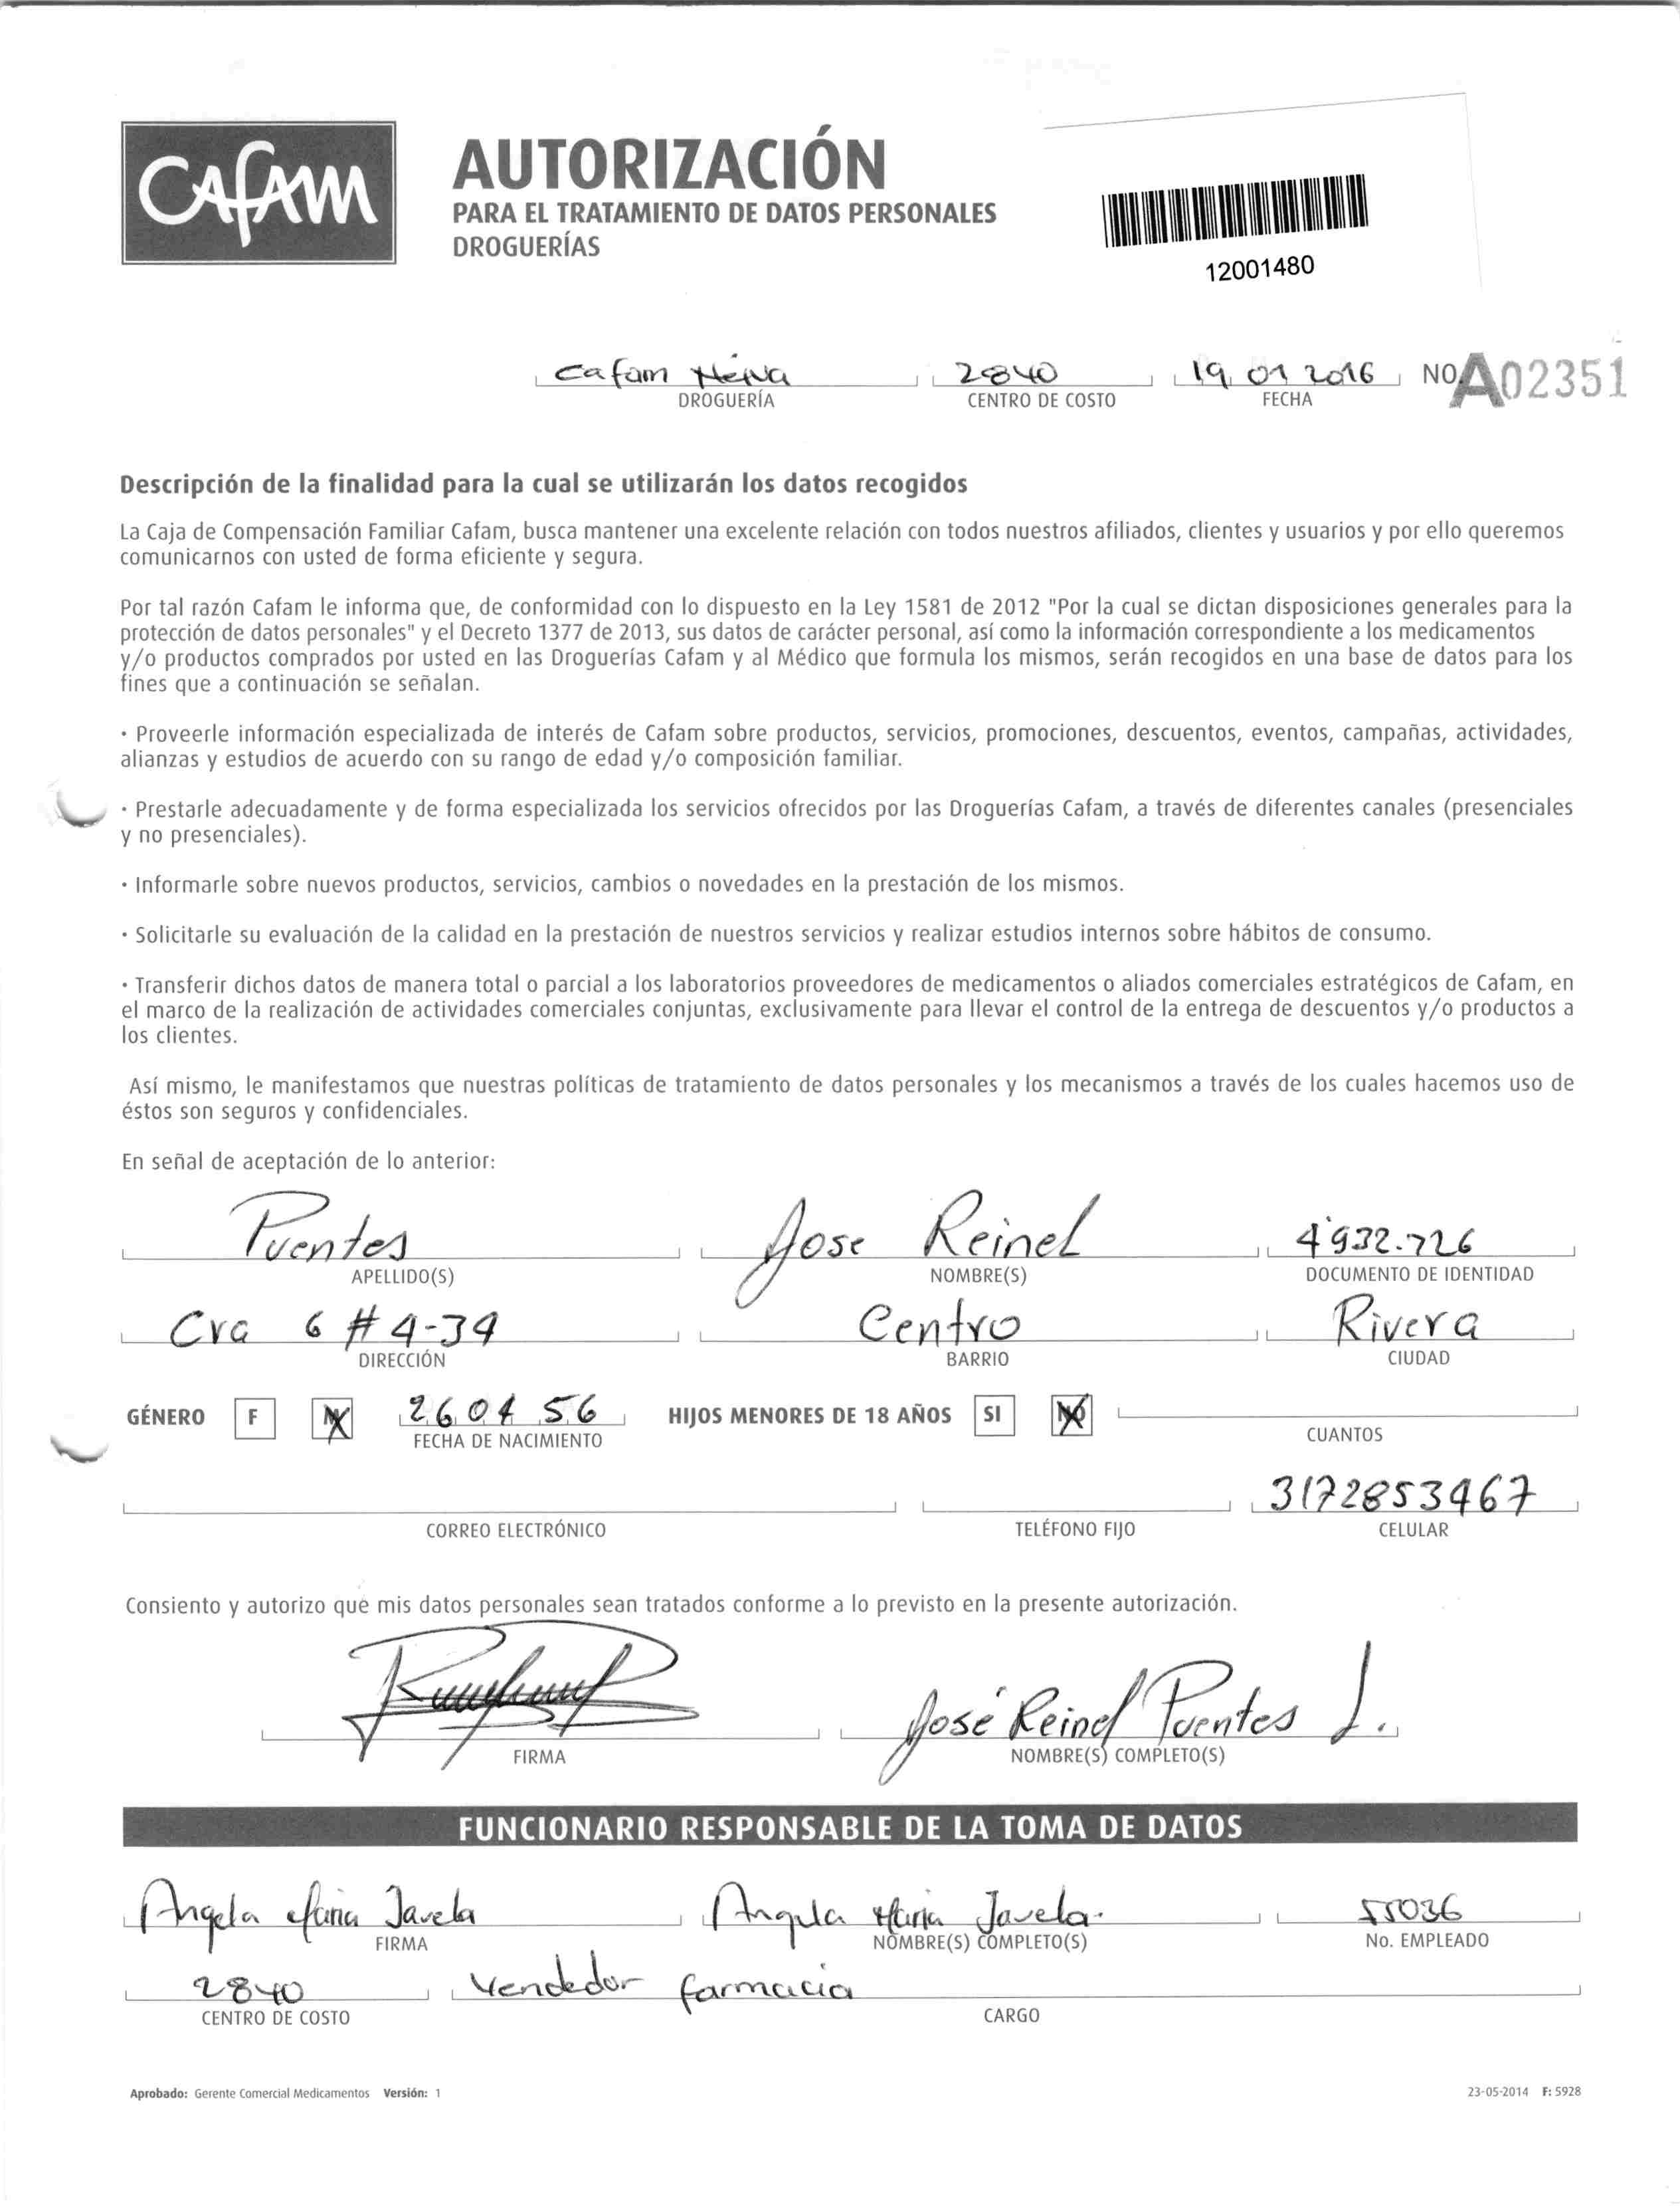 CAFAM
AUTORIZACIÓN
PARA EL TRATAMIENTO DE DATOS PERSONALES
DROGUERÍAS
12001480
Cafam Neiva 2840 19 01 2016 NO. A02351
DROGUERÍA CENTRO DE COSTO FECHA
Descripción de la finalidad para la cual se utilizarán los datos recogidos
La Caja de Compensación Familiar Cafam, busca mantener una excelente relación con todos nuestros afiliados, clientes y usuarios y por ello queremos
comunicarnos con usted de forma eficiente y segura.
Por tal razón Cafam le informa que, de conformidad con lo dispuesto en la Ley 1581 de 2012 "Por la cual se dictan disposiciones generales para la
protección de datos personales" y el Decreto 1377 de 2013, sus datos de carácter personal, así como la información correspondiente a los medicamentos
y/o productos comprados por usted en las Droguerías Cafam y al Médico que formula los mismos, serán recogidos en una base de datos para los
fines que a continuación se señalan.
· Proveerle información especializada de interés de Cafam sobre productos, servicios, promociones, descuentos, eventos, campañas, actividades,
alianzas y estudios de acuerdo con su rango de edad y/o composición familiar.
· Prestarle adecuadamente y de forma especializada los servicios ofrecidos por las Droguerías Cafam, a través de diferentes canales (presenciales
y no presenciales).
· Informarle sobre nuevos productos, servicios, cambios o novedades en la prestación de los mismos.
· Solicitarle su evaluación de la calidad en la prestación de nuestros servicios y realizar estudios internos sobre hábitos de consumo.
· Transferir dichos datos de manera total o parcial a los laboratorios proveedores de medicamentos o aliados comerciales estratégicos de Cafam, en
el marco de la realización de actividades comerciales conjuntas, exclusivamente para llevar el control de la entrega de descuentos y/o productos a
los clientes.
Así mismo, le manifestamos que nuestras políticas de tratamiento de datos personales y los mecanismos a través de los cuales hacemos uso de
éstos son seguros y confidenciales.
En señal de aceptación de lo anterior:
Puentes Jose Reinel 4'932.726
APELLIDO(S) NOMBRE(S) DOCUMENTO DE IDENTIDAD
Cra 6 # 4-34 Centro Rivera
DIRECCIÓN BARRIO CIUDAD
GÉNERO F M 26 01 56 HIJOS MENORES DE 18 AÑOS SI NO
FECHA DE NACIMIENTO CUANTOS
3172853467
CORREO ELECTRÓNICO TELÉFONO FIJO CELULAR
Consiento y autorizo que mis datos personales sean tratados conforme a lo previsto en la presente autorización.
José Reinel Puentes L.
FIRMA NOMBRE(S) COMPLETO(S)
FUNCIONARIO RESPONSABLE DE LA TOMA DE DATOS
Angela Maria Javela Angela Maria Javela. 55036
FIRMA NOMBRE(S) COMPLETO(S) No. EMPLEADO
2840 Vendedor farmacia
CENTRO DE COSTO CARGO
Aprobado: Gerente Comercial Medicamentos Versión: 1 23-05-2014 F: 5928